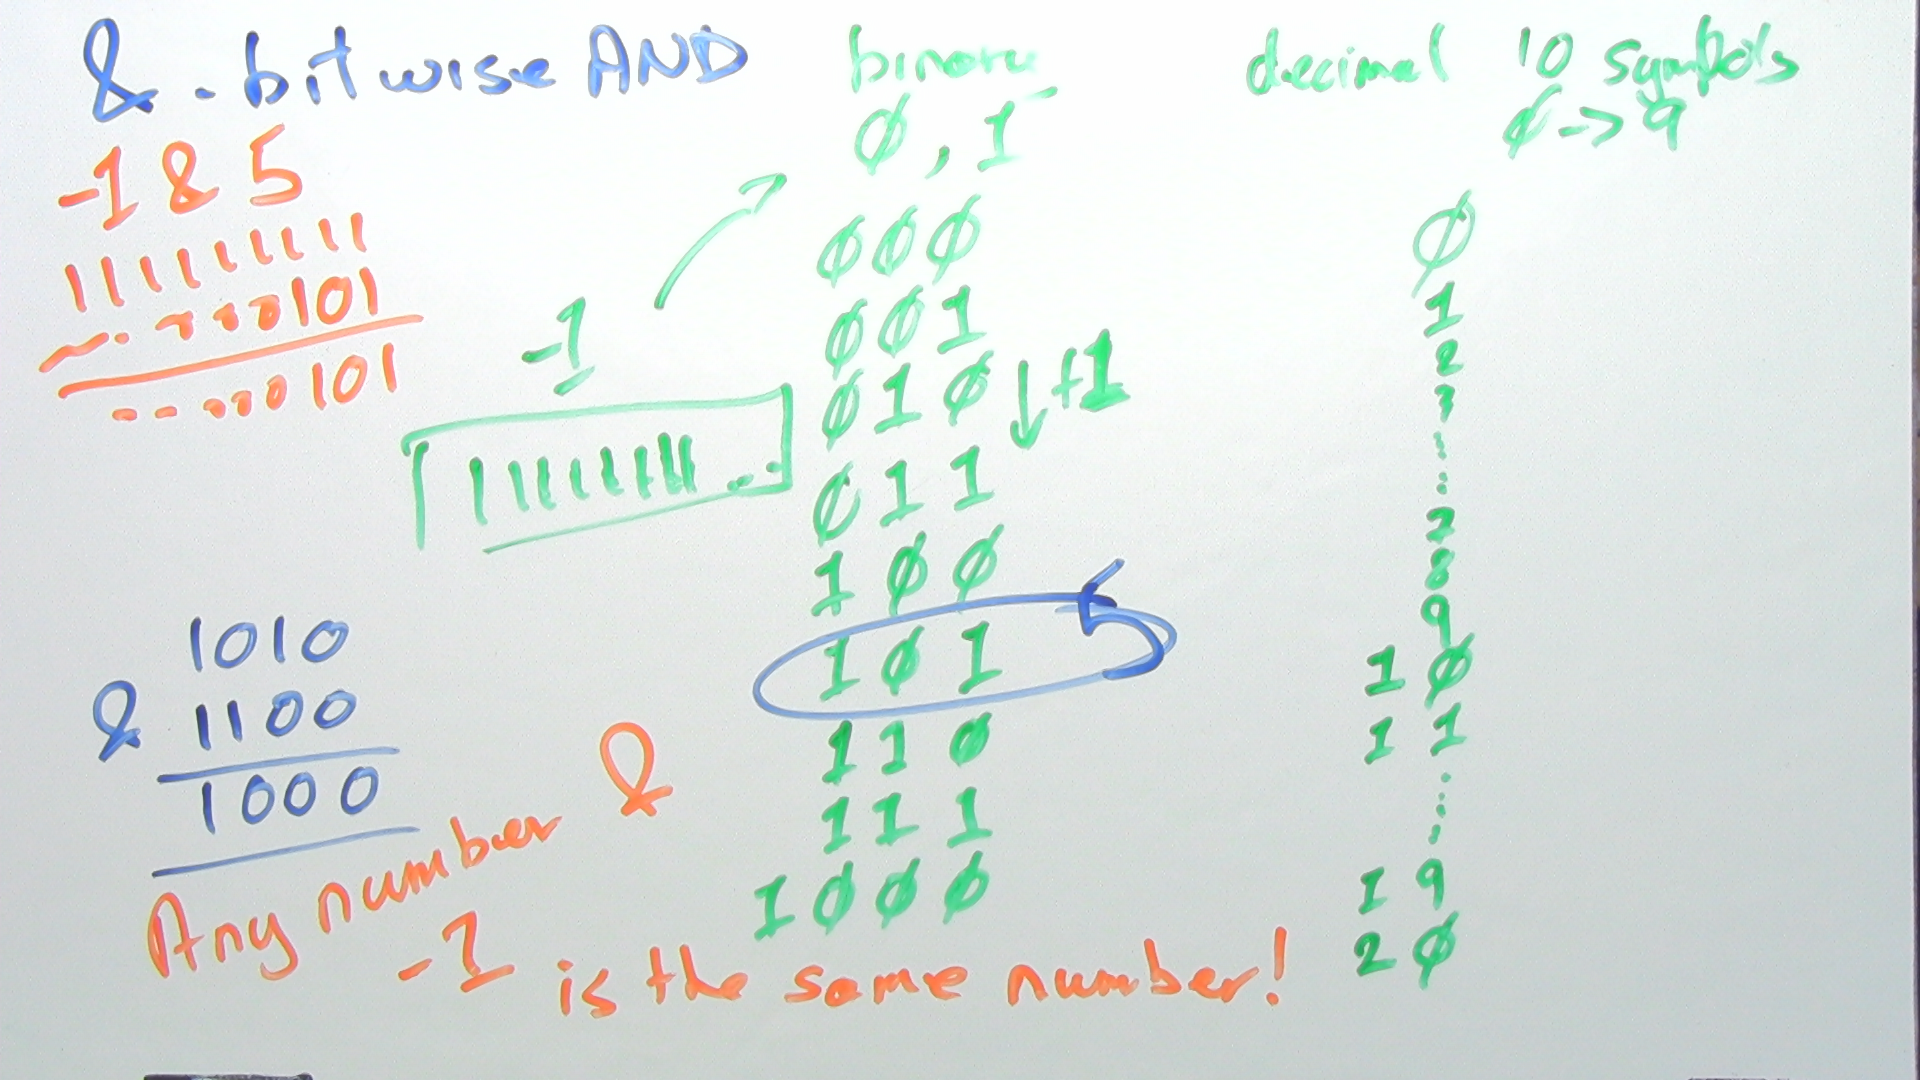 & - bitwise AND
-1 & 5
111111111
...000101
...000101
-1
11111111...
1010
& 1100
1000
Any number &
-1 is the same number!
binary
0, 1
000
001
010
↓ +1
011
100
101
110
111
1000
decimal 10 symbols
0 -> 9
0
1
2
3
7
8
9
10
11
19
20